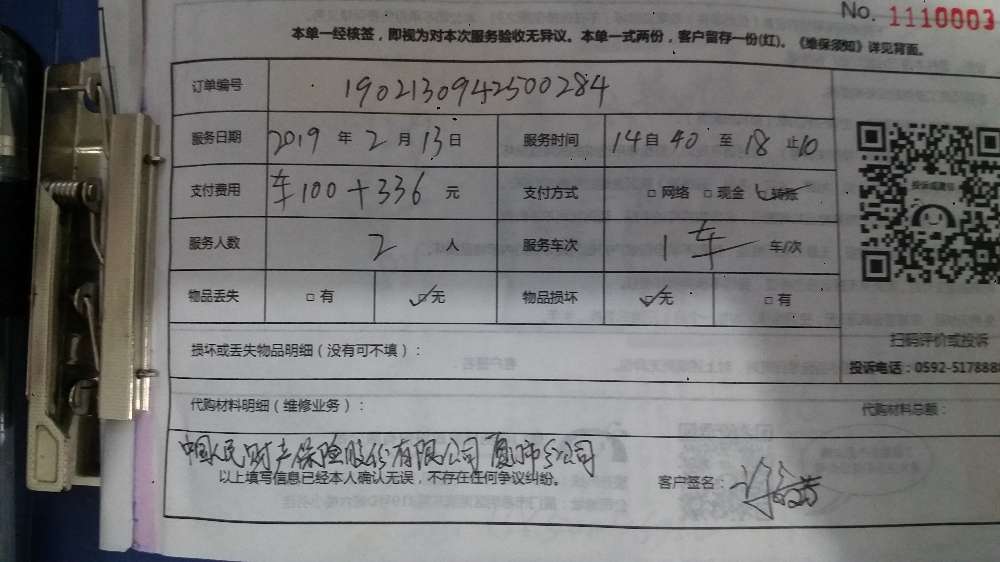 No. 1110003
本单一经核签，即视为对本次服务验收无异议。本单一式两份，客户留存一份(红)。《维保须知》详见背面。
订单编号 1902130942500284
服务日期 2019 年 2 月 13 日 服务时间 14 自 40 至 18 止 10
支付费用 车100+336 元 支付方式 □ 网络 □ 现金 转账
服务人数 2 人 服务车次 1车 车/次
物品丢失 □ 有 ☑ 无 物品损坏 ☑ 无 □ 有
投诉或建议
扫码评价或投诉
损坏或丢失物品明细（没有可不填）：
投诉电话：0592-5178888
代购材料明细（维修业务）： 代购材料总额：
中国人民财产保险股份有限公司厦门市分公司
以上填写信息已经本人确认无误，不存在任何争议纠纷。 客户签名：